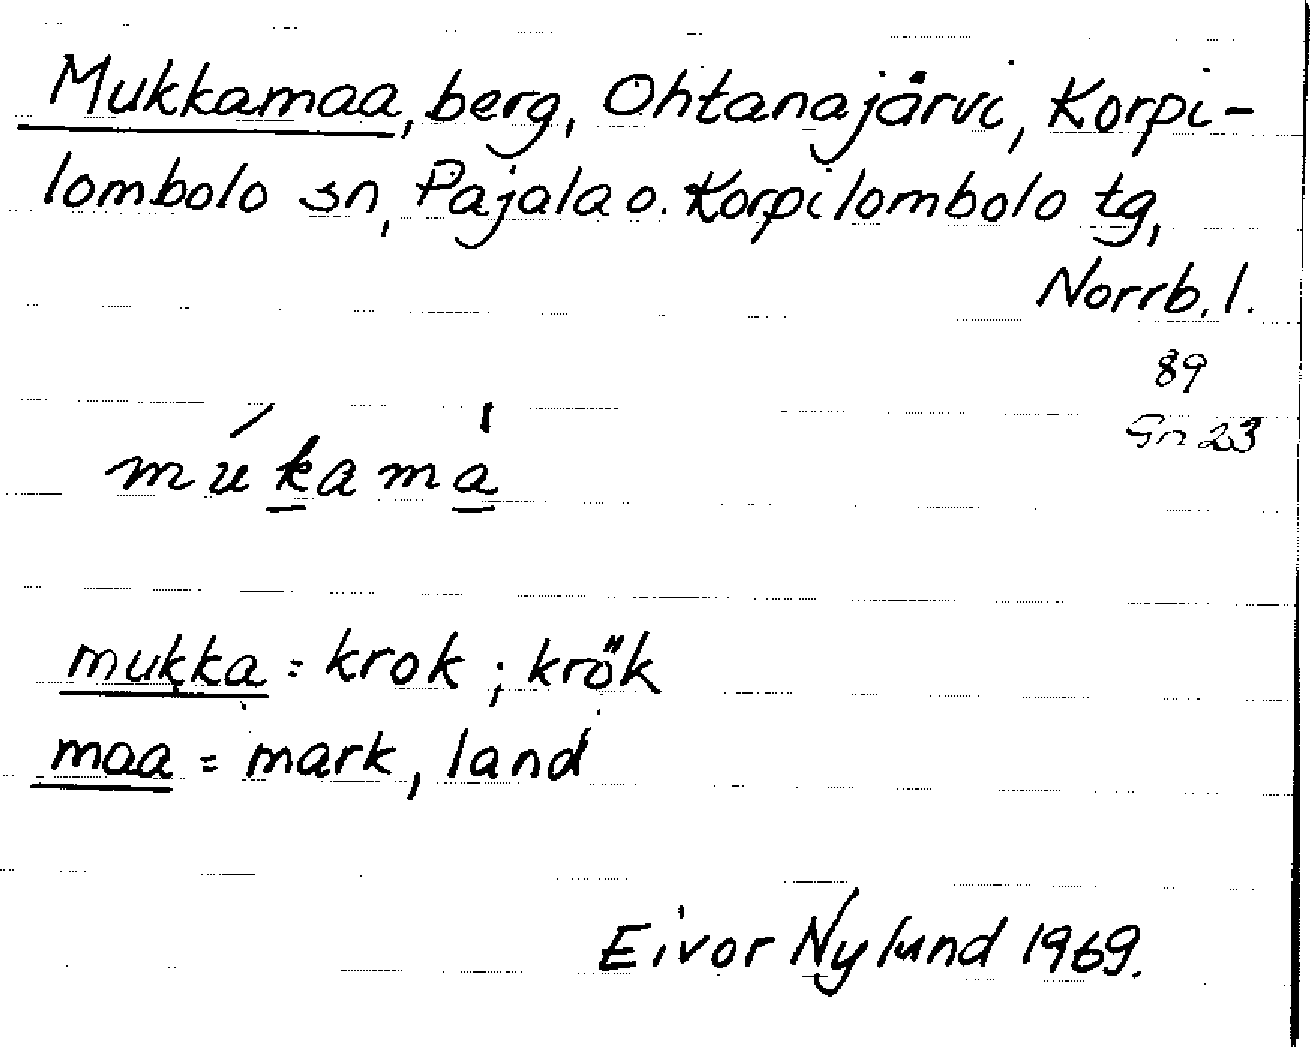 Mukkamaa, berg, Ohtanajärvi, Korpi-
lombolo sn, Pajala o. Korpilombolo tg,
Norrb. l.
89
Gn 23
múkamá
mukka = krok ; krök
maa = mark, land
Eivor Nylund 1969.